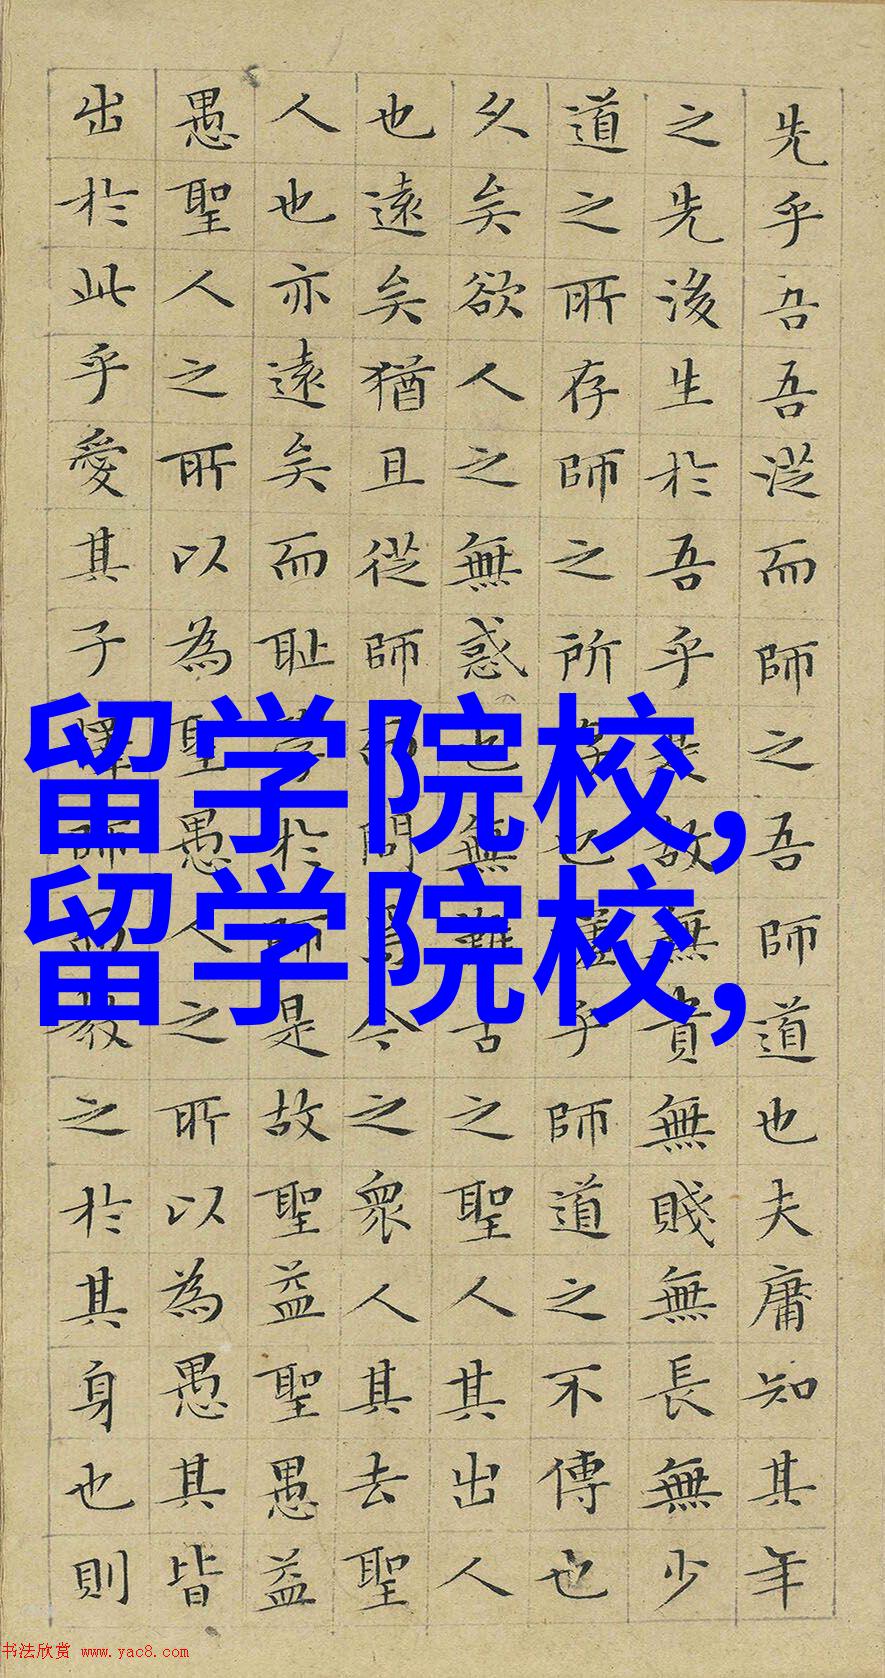 先乎吾吾從而師之吾師道也夫庸知其年
之先後生於吾乎是故無貴無賤無長無少
道之所存師之所存也嗟乎師道之不傳也
久矣欲人之無惑也無難古之聖人其出人
也遠矣猶且從師而問焉今之衆人其去聖
人也亦遠矣而恥學於師是故聖益聖愚益
愚聖人之所以為聖愚人之所以為愚其皆
出於此乎愛其子擇師而教之於其身也則
留学院校,
留学院校,
书法欣赏 www.yac8.com